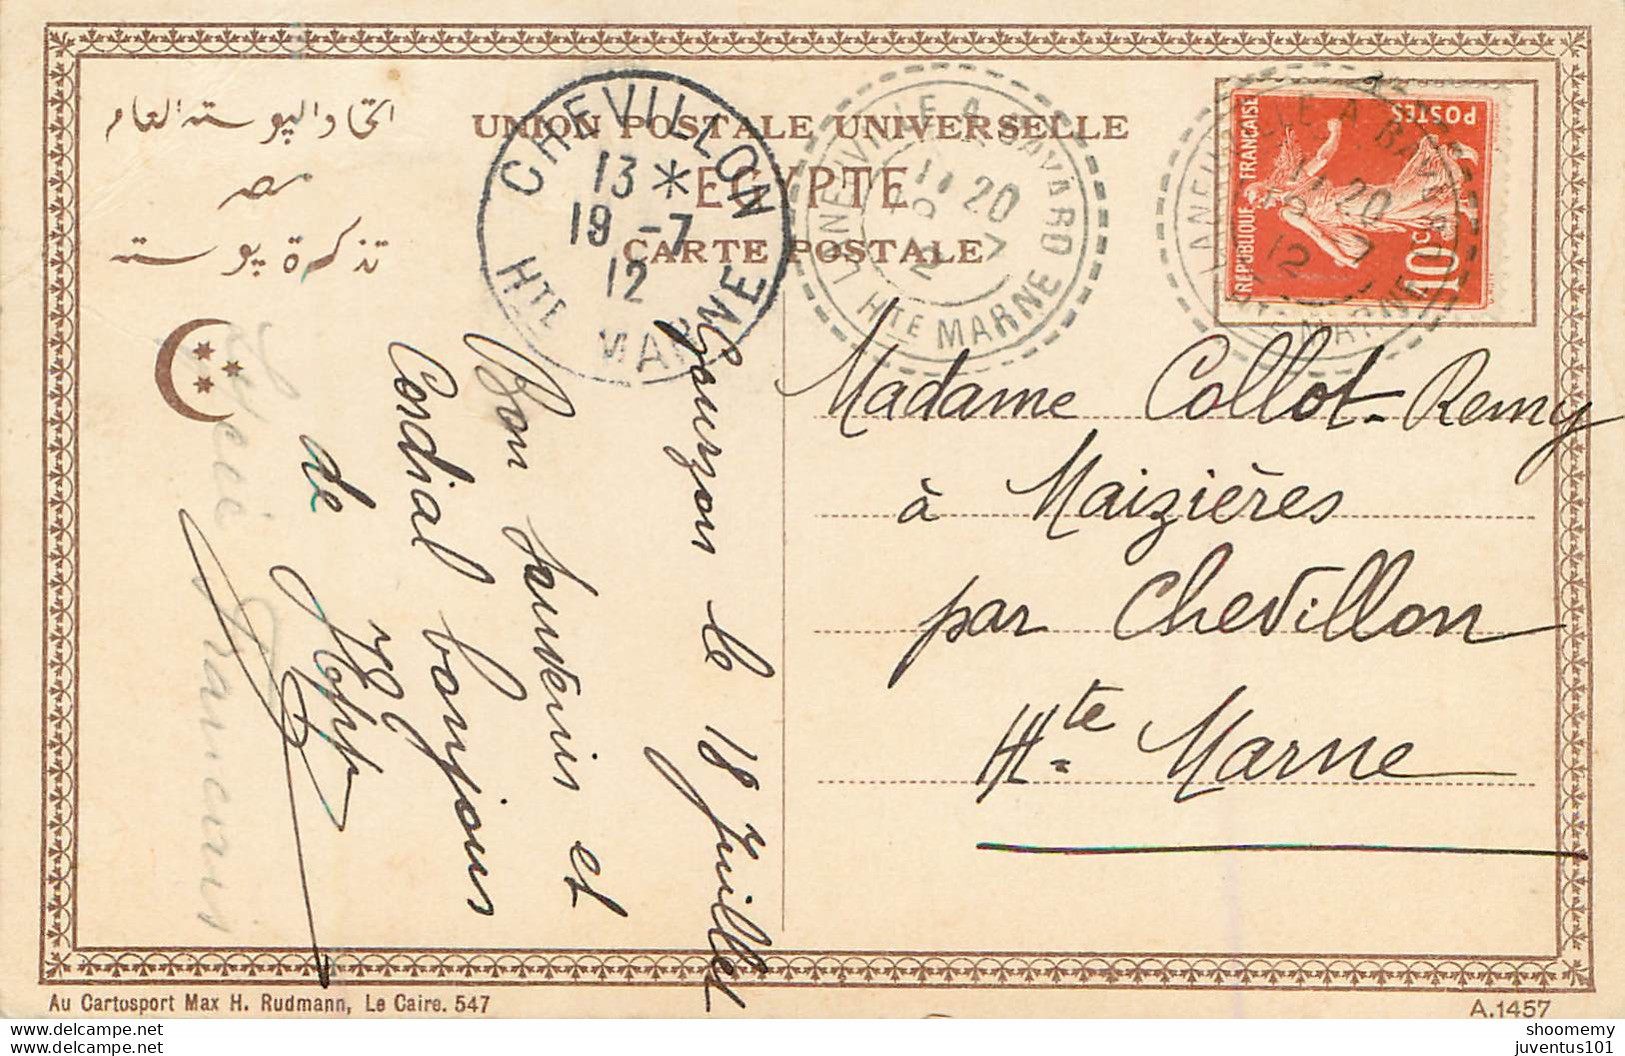 اتحاد البوسته العام
مصر
تذكرة بوسته
UNION POSTALE UNIVERSELLE
EGYPTE
CARTE POSTALE
CHEVILLON
13 *
19 -7
12
HTE MARNE
LANEUVILLE A BAYARD
20
HTE MARNE
LANEUVILLE A BAYARD
20
12
MARNE
RÉPUBLIQUE FRANÇAISE
POSTES
10c
Madame Collot-Remy
à Maizières
par Chevillon
Hte Marne
Gourzon le 18 Juillet
Bon souvenir et
Cordial bonjour
de
Au Cartosport Max H. Rudmann, Le Caire. 547
A.1457
delcampe.net
juventus101
shoomemy
juventus101